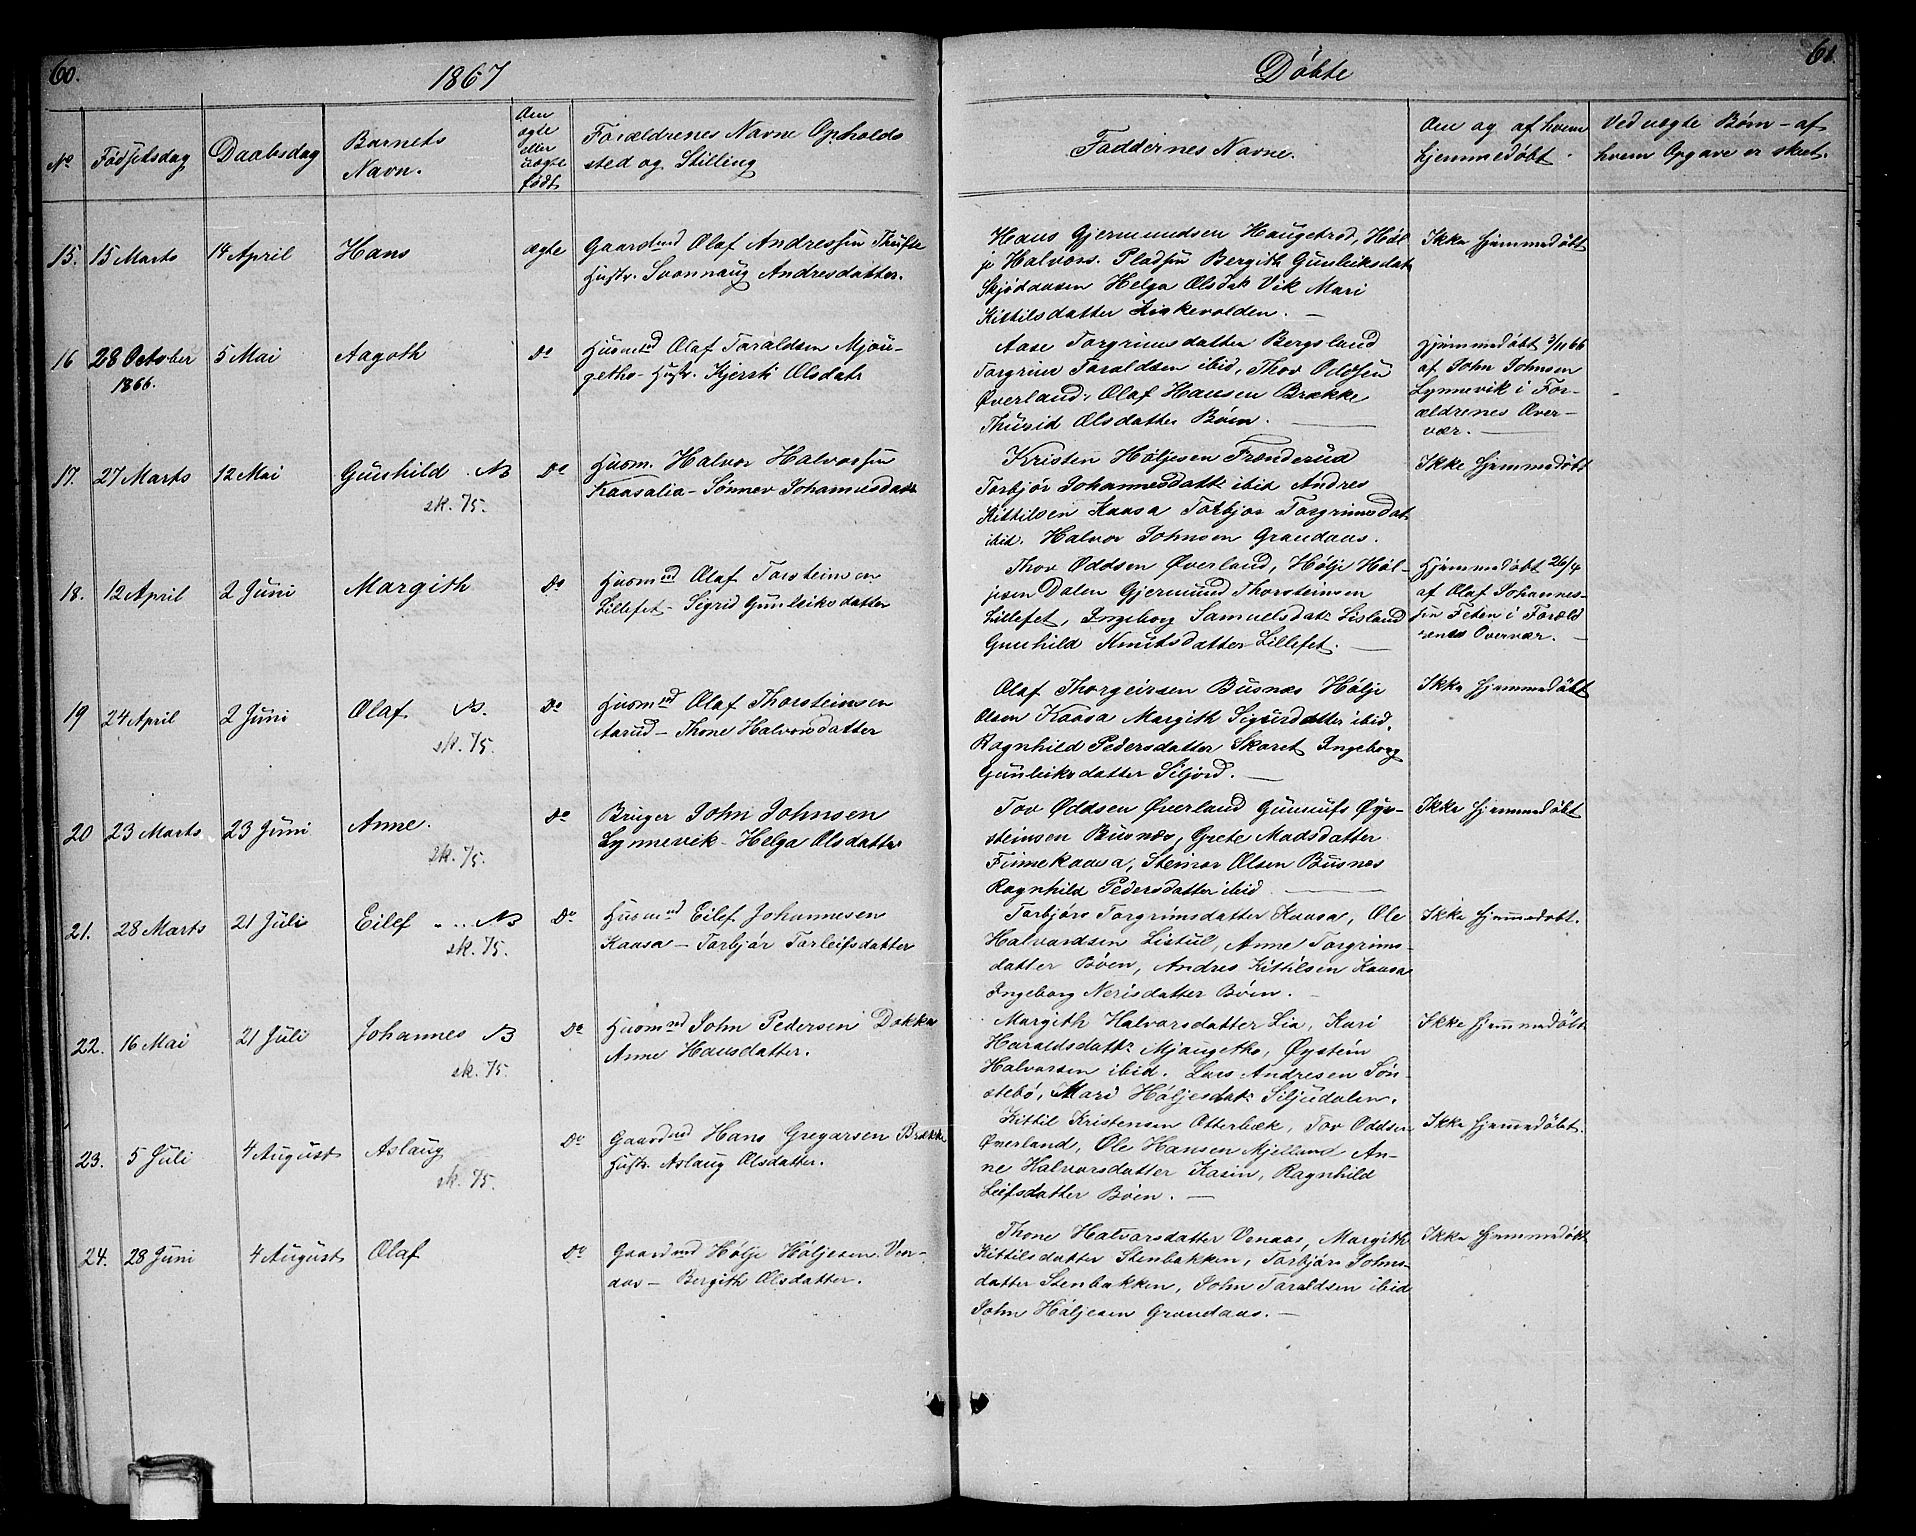 60.
1867
Døbte
61.
No
Fødselsdag
Daabsdag
Barnets
Navn.
Om
ægte
eller
uægte
født
Forældrenes Navne Opholds
sted og Stilling
Faddernes Navne.
Om og af hvem
hjemmedøbt.
Ved uægte Børn - af
hvem Opgave er skeet.
15. 15 Marts 14 April Hans ægte Gaardmd Olaf Andressen
Hustr. Svannaug Andresdatter.
Hans Gjermundsen Haugerød, Høl-
je Halvors. Pladsen Bergith Gunleiksdat
Skjødaasen Helga Olsdat Vik Mari
Kittilsdatter Liskevolden.
Ikke hjemmedøbt
16 28 October 5 Mai Aagoth Do Husmd Olaf Taraldsen Mjau-
1866.
getho - Hustr. Kjersti Olsdatr
Aase Torgrimsdatter Bergsland
Torgrim Taraldsen ibid, Thov Oddsen
Øverland, Olaf Hansen Brække
Thurid Olsdatter Bøen.
Hjemmedøbt 3/11 66
af John Johnsen
Lynnevik i For-
ældrenes Over-
vær.
17. 27 Marts 12 Mai Gunhild. NB Do Husm. Halvor Halvorsen
sk. 75.
Kaasalia - Sønnev Johannesdatt
Kristen Høljesen Frønderud
Torbjør Johannesdatt ibid Andres
Kittilsen Kaasa Torbjør Torgrimsdat.
ibid. Halvor Johnsen Grandaas.
Ikke Hjemmedøbt
18. 12 April 2 Juni Margith Do Husmd Olaf Torsteinsen
Lillefet - Sigrid Gunleiksdatter
Thov Oddsen Øverland, Hølje Høl-
jesen Dalen Gjermund Thorsteinsen
Lillefet, Ingeborg Samuelsdatr Lisland
Gunhild Knutsdatter Lillefet.
Hjemmedøbt 26/4
af Olaf Johannes-
sen Feten i Foræld
renes Overvær.
19 24 April 2 Juni Olaf NB. Do Husmd Olaf Thorsteinsen
sk. 75.
Aarud - Thone Halvorsdatter
Olaf Thorgeirsen Busnes Hølje
Olsen Kaasa Margith Sigurdatter ibid,
Ragnhild Pedersdatter Skaret Ingeborg
Gunleiksdatter Siljord.
Ikke hjemmedøbt
20 23 Marts 23 Juni Anne. Do Bruger John Johnsen
sk. 75.
Lynnevik - Helga Olsdatter
Tov Oddsen Øverland Gunnuf Øy-
steinsen Busnes, Grete Madsdatter
Finnekaasa, Steinar Olsen Busnes
Ragnhild Pedersdatter ibid
Ikke hjemmedøbt
21. 28 Marts 21 Juli Eilef NB Do Husmnd Eilef Johannesen
sk. 75.
Kaasa - Torbjør Torleifsdatter
Torbjørn Torgrimsdatter Kaasa, Ole
Halvardsen Listul, Anne Torgrims-
datter Bøen, Andres Kittilsen Kaasa
Ingeborg Nerisdatter Bøen.
Ikke hjemmedøbt.
22. 16 Mai 21 Juli Johannes NB Do Husmnd John Pedersen Dokka
sk. 75.
Anne Hansdatter.
Margith Halvorsdatter Lia, Kari
Haraldsdattr Mjaugetho, Øystein
Halvorsen ibid. Lars Andresen Søn-
stebø, Mari Høljesdatr Siljudalen.
Ikke hjemmedøbt
23. 5 Juli 4 August Aslaug Do Gaardmd Hans Gregarsen Brække
sk. 75.
Hustr. Aslaug Olsdatter.
Kittil Kristensen Otterbæk, Tov Oddsen
Øverland, Ole Hansen Mjelland An-
ne Halvorsdatter Kasin, Ragnhild
Leifsdatter Bøen.
Ikke hjemmedøbt.
24. 28 Juni 4 August Olaf Do Gaardmd Hølje Høljesen Ven-
aas - Bergith Olsdatter.
Thone Halvorsdatter Venaas, Margith
Kittilsdatter Stenbakken, Torbjør Johns-
datter Stenbakken, John Taraldsen ibid
John Høljesen Grandaas.
Ikke hjemmedøbt